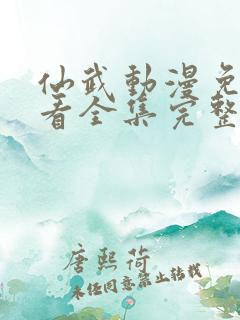 仙武動漫免
看全集完整
唐熙荷
未经同意禁止转载